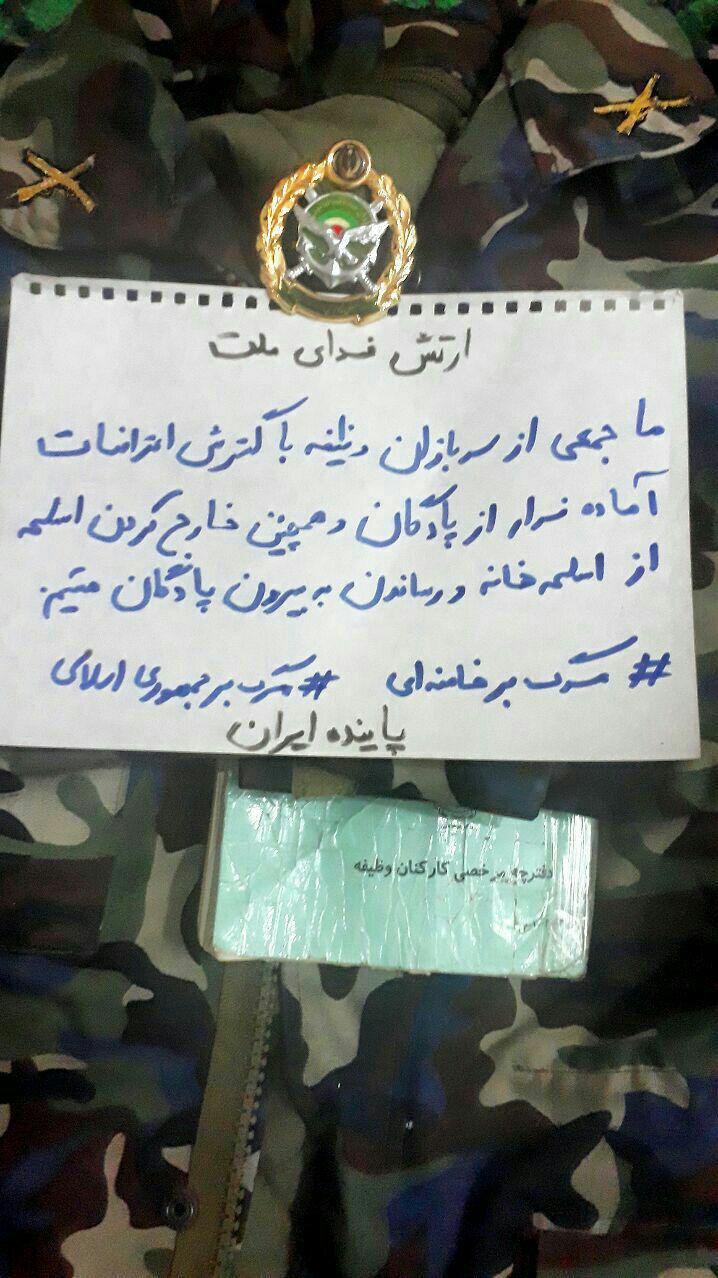 ارتش فدای ملت
ما جمعی از سربازان وظیفه با گسترش اعتراضات
آماده فرار از پادگان و همچنین خارج کردن اسلحه
از اسلحه خانه و رساندن به بیرون پادگان هستیم.
# مرگ بر خامنه ای # مرگ بر جمهوری اسلامی
پاینده ایران
دفترچه مرخصی کارکنان وظیفه